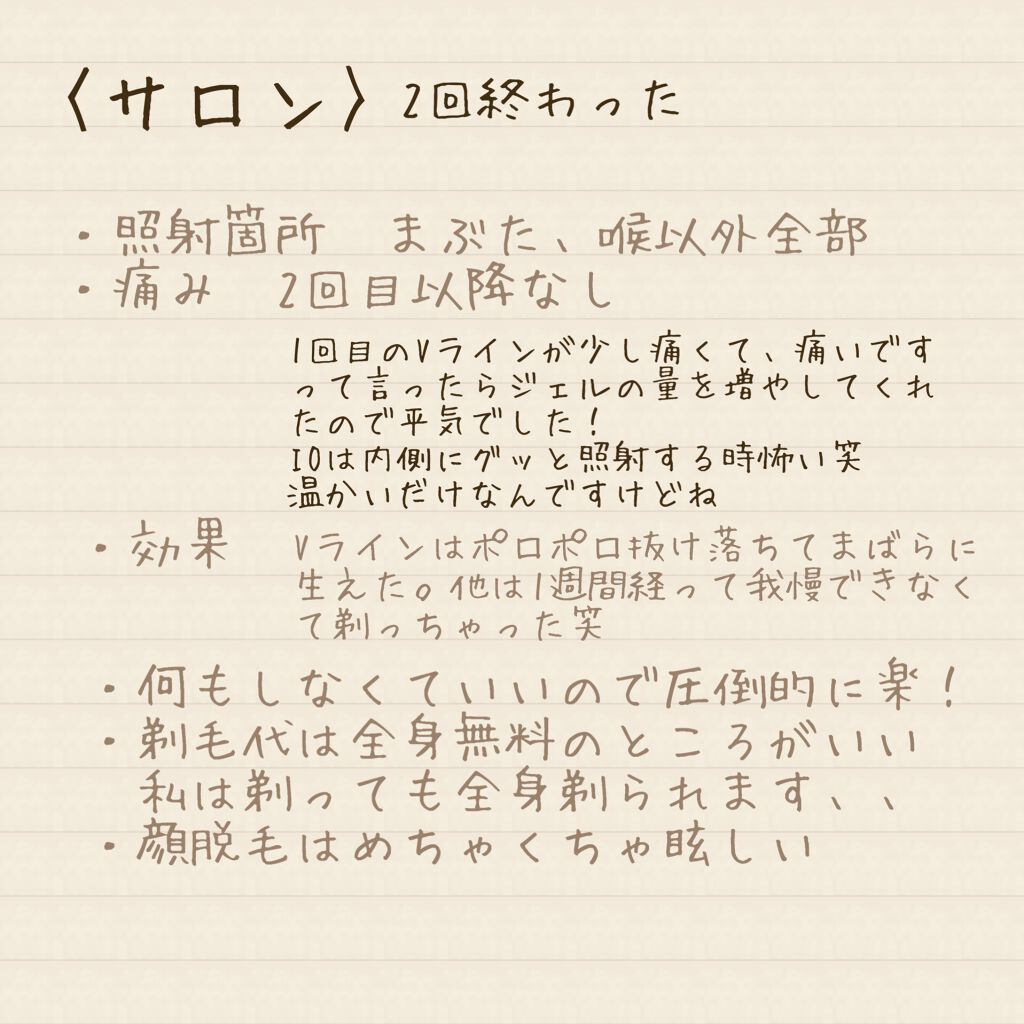 〈サロン〉2回終わった
・照射箇所　まぶた、喉以外全部
・痛み　2回目以降なし
1回目のVラインが少し痛くて、痛いです
って言ったらジェルの量を増やしてくれ
たので平気でした！
IOは内側にグッと照射する時怖い笑
温かいだけなんですけどね
・効果　Vラインはポロポロ抜け落ちてまばらに
生えた。他は1週間経って我慢できなく
て剃っちゃった笑
・何もしなくていいので圧倒的に楽！
・剃毛代は全身無料のところがいい
私は剃っても全身剃られます、、
・顔脱毛はめちゃくちゃ眩しい